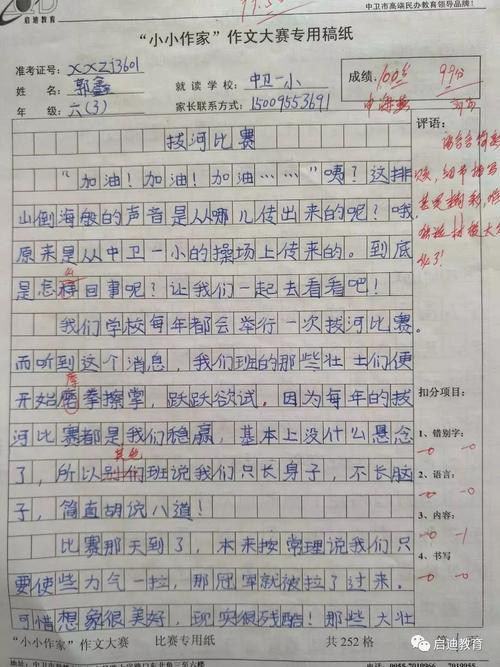 启迪教育
中卫市高端民办教育领导品牌!
99.50
“小小作家”作文大赛专用稿纸
准考证号: XXZJ3601
姓 名 郭鑫
就读学校: 中卫一小
年 级: 六(3)
家长联系方式: 15009553691
成绩: 100分 99分
评语:
拔河比赛
“加油!加油!加油……”咦?这排
山倒海般的声音是从哪儿传出来的呢?哦,
原来是从中卫一小的操场上传来的。到底
是怎么回事呢?让我们一起去看看吧!
我们学校每年都会举行一次拔河比赛。
而听到这个消息,我们班的那些壮士们便
开始摩拳擦掌,跃跃欲试。因为每年的拔
河比赛都是我们稳赢,基本上没什么悬念
了,所以别的其他班说我们只长身子,不长脑
子,简直胡说八道!
比赛那天到了,本来按常理说我们只
要使些力气一拉,那冠军就被拉了过来。
可惜想象很美好,现实很残酷!那些大壮
扣分项目:
1、错别字:
-0 -0
2、语言:
-0 -0
3、内容:
-0 -1
4、书写
-0 -0
“小小作家”作文大赛
比赛专用纸
共 252 格
第 1 页
启迪教育